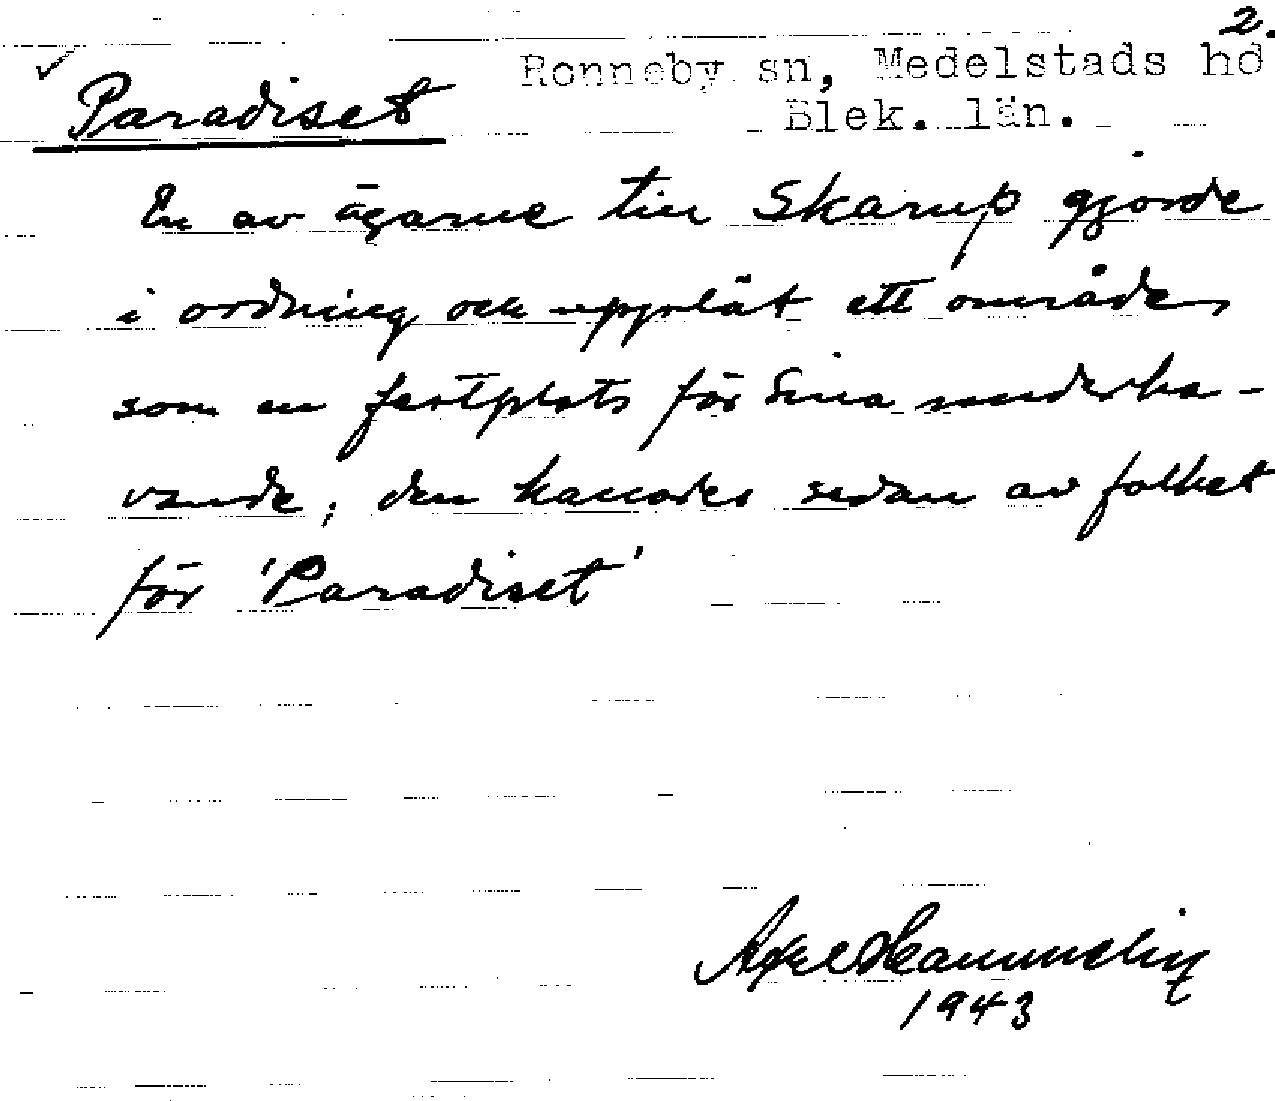 2.
Ronneby sn, Medelstads hd
Paradiset
Blek. län.
En av ägarne till Skarup gjorde
i ordning och uppslät ett område
som en festplats för sina underha-
vande; den kanades sedan av folket
för 'Paradiset'
Axel
1943